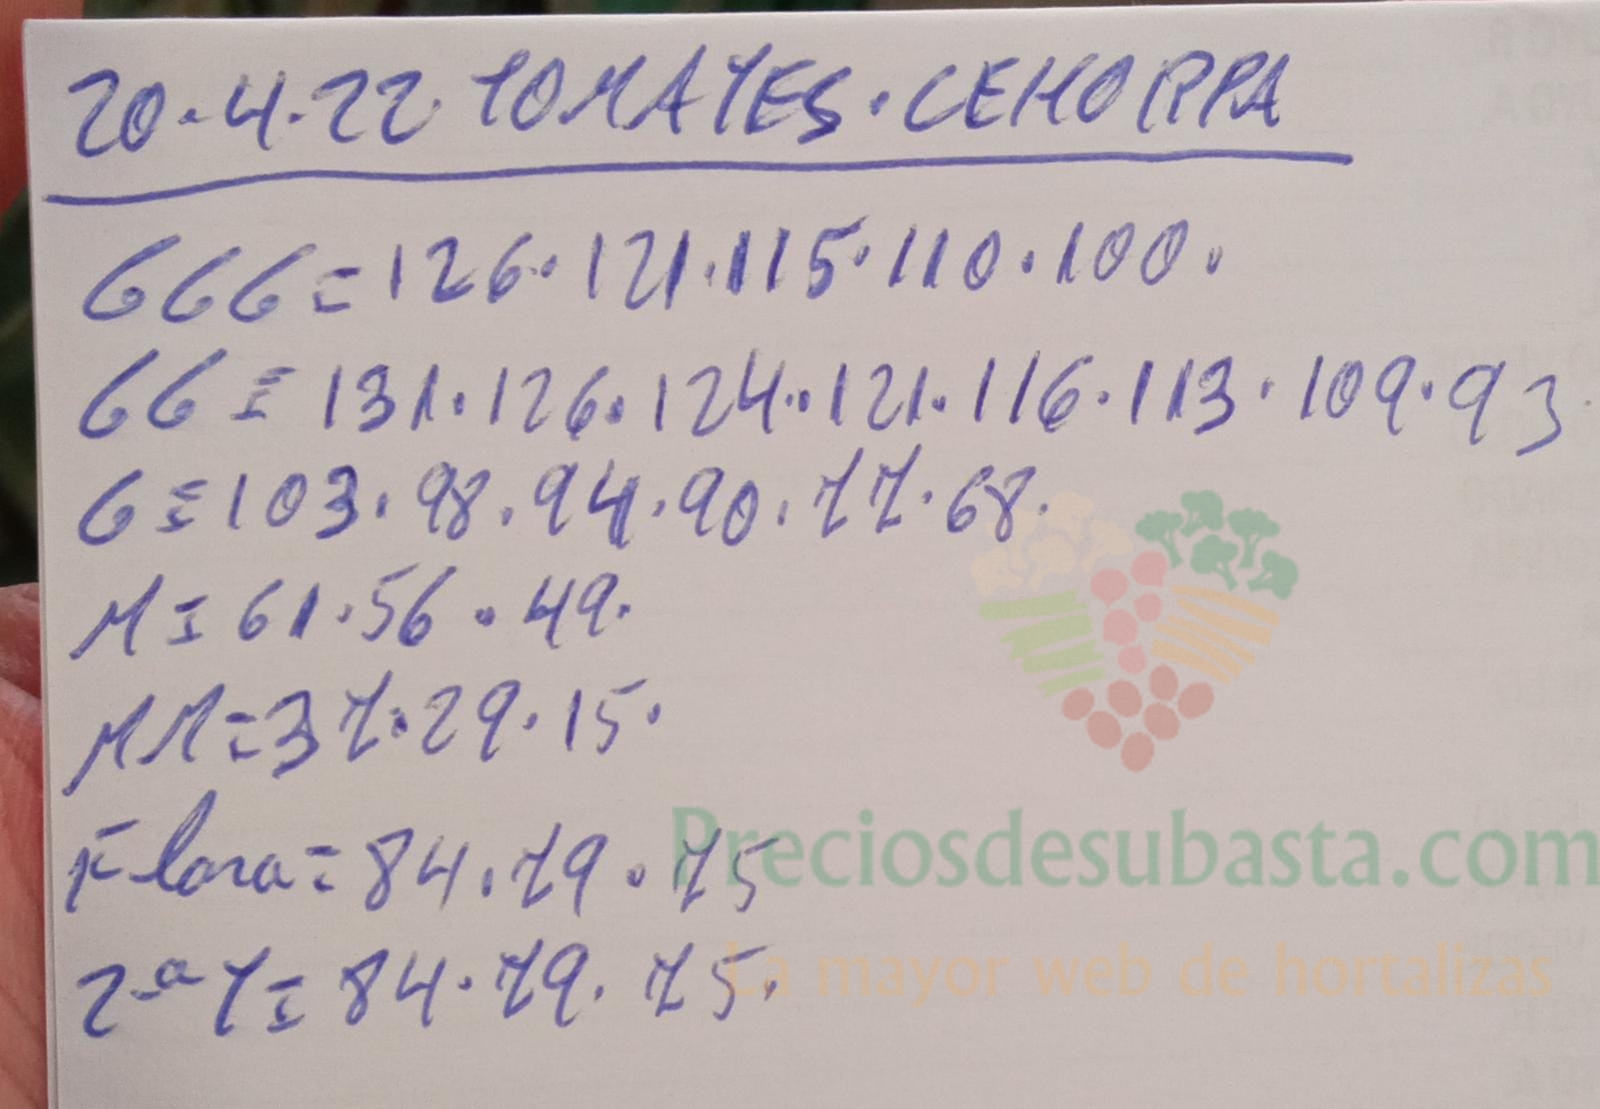 20·4·22 TOMATES·CEHORPA
GGG=126·121·115·110·100·
GG=131·126·124·121·116·113·109·93
G=103·98·94·90·77·68·
M=61·56·49·
MM=37·29·15·
Flora=84·79·75
2ªT=84·79·75·
Preciosdesubasta.com
La mayor web de hortalizas